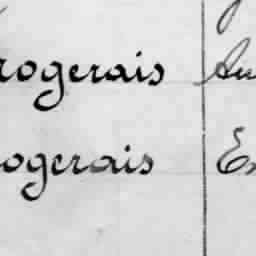 rogerais Au
ogerais Ex